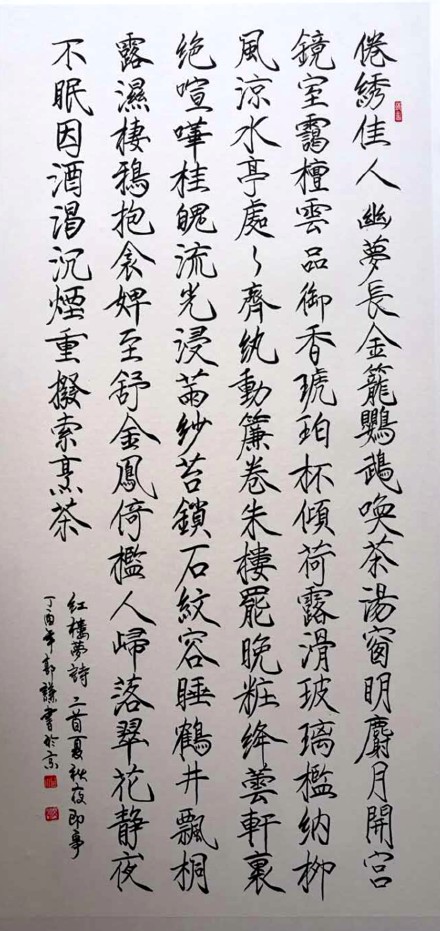 倦绣佳人幽夢長金籠鸚鵡喚茶湯窗明麝月開宫
鏡室靄檀雲品御香琥珀杯傾荷露滑玻璃檻納柳
風涼水亭處々齊紈動簾卷朱樓罷晚粧絳蕓軒裏
绝喧嘩桂魄流光浸茜纱苔鎖石紋容睡鶴井飄桐
露濕棲鴉抱衾婢至舒金鳳倚檻人歸落翠花静夜
不眠因酒渴沉煙重撥索烹茶
红樓夢詩二首夏秋夜即事
丁酉年郭謙書於京